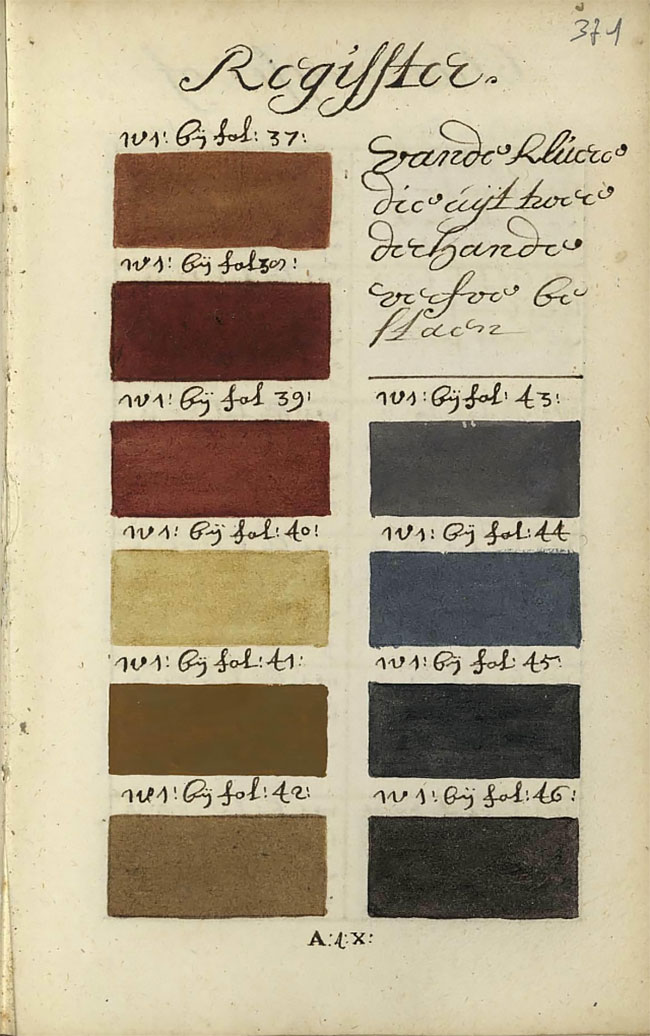 371
Regisster.
w1: bij fol: 37:
w1: bij fol 38:
w1: bij fol 39:
w1: bij fol: 40:
w1: bij fol: 41:
w1: bij fol: 42:
vande klüere
die uijt twee
derhande
verfve be
staen
w1: bij fol: 43:
w1: bij fol: 44
w1: bij fol: 45:
w1: bij fol: 46:
A:1:X: